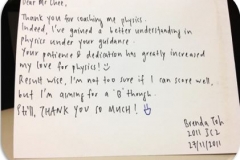 Dear Mr Chee,
Thank you for coaching me physics.
Indeed, I've gained a better understanding in
physics under your guidance.
Your patience & dedication has greatly increased
my love for physics! ☺
Result wise, I'm not too sure if I can score well,
but I'm aiming for a 'B' though.
Still, THANK YOU SO MUCH! ☺
Brenda Toh
2011 3C2
29/11/2011